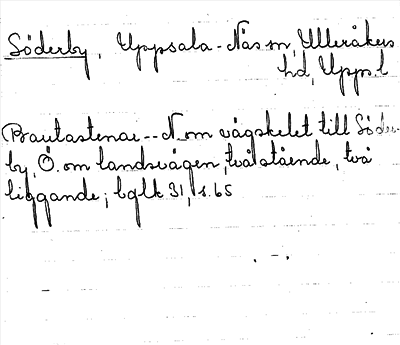 Söderby, Uppsala-Näs sn, Ulleråkers
hd, Upps.l
Bautastenar -- N. om vägskelet till Söder-
by, Ö. om landsvägen, två stående, två
liggande; bglk 31, s. 65